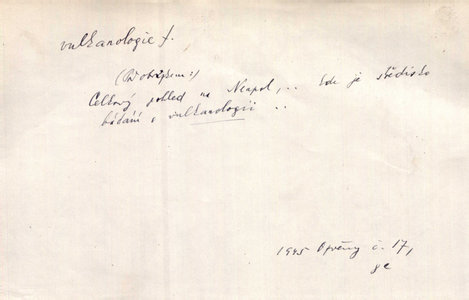 vulkanologie f.
(Pod obrázkem:)
Celkový pohled na Neapol, .. kde je středisko
bádání o vulkanologii ..
1945 č. 17,